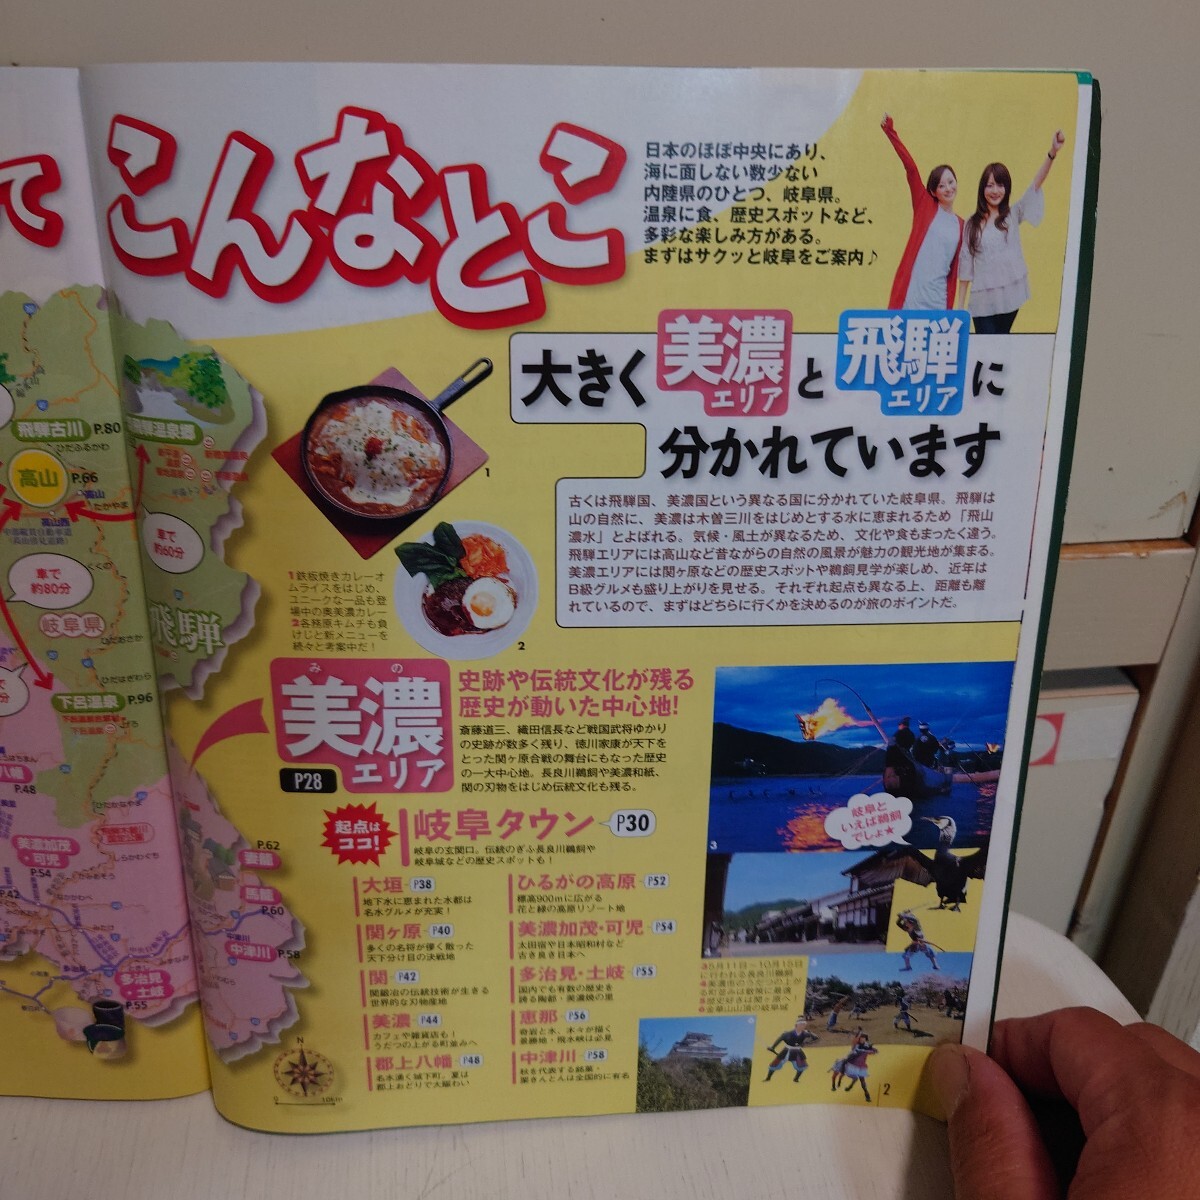 て
こんなとこ
日本のほぼ中央にあり、
海に面しない数少ない
内陸県のひとつ、岐阜県。
温泉に食、歴史スポットなど、
多彩な楽しみ方がある。
まずはサクッと岐阜をご案内♪
大きく美濃エリアと飛騨エリアに
分かれています
古くは飛騨国、美濃国という異なる国に分かれていた岐阜県。飛騨は
山の自然に、美濃は木曽三川をはじめとする水に恵まれるため「飛山
濃水」とよばれる。気候・風土が異なるため、文化や食もまったく違う。
飛騨エリアには高山など昔ながらの自然の風景が魅力の観光地が集まる。
美濃エリアには関ヶ原などの歴史スポットや鵜飼見学が楽しめ、近年は
B級グルメも盛り上がりを見せる。それぞれ起点も異なる上、距離も離
れているので、まずはどちらに行くかを決めるのが旅のポイントだ。
1
2
1鉄板焼きカレーオ
ムライスをはじめ、
ユニークな一品も登
場中の奥美濃カレー
2各務原キムチも負
けじと新メニューを
続々と考案中だ!
飛騨古川 P.80
ひだふるかわ
高山 P.66
たかやま
車で
約60分
車で
約80分
岐阜県
飛騨
下呂温泉 P.96
美濃加茂
・可児
P.54
P.48
P.42
P.62
妻籠
馬籠
P.60
中津川 P.58
多治見
・土岐
P.55
N
0 10km
みの
美濃
エリア
P28
史跡や伝統文化が残る
歴史が動いた中心地!
斎藤道三、織田信長など戦国武将ゆかり
の史跡が数多く残り、徳川家康が天下を
とった関ヶ原合戦の舞台にもなった歴史
の一大中心地。長良川鵜飼や美濃和紙、
関の刃物をはじめ伝統文化も残る。
起点は
ココ!
岐阜タウン P30
岐阜の玄関口。伝統のぎふ長良川鵜飼や
岐阜城などの歴史スポットも!
大垣 P38
地下水に恵まれた水都は
名水グルメが充実!
関ヶ原 P40
多くの名将が儚く散った
天下分け目の決戦地
関 P42
関鍛冶の伝統技術が生きる
世界的な刃物産地
美濃 P44
カフェや雑貨店も!
うだつの上がる町並みへ
郡上八幡 P48
名水湧く城下町。夏は
郡上おどりで大賑わい
ひるがの高原 P52
標高900mに広がる
花と緑の高原リゾート地
美濃加茂・可児 P54
太田宿や日本昭和村など
古き良き日本へ
多治見・土岐 P55
国内でも有数の歴史を
誇る陶都・美濃焼の里
恵那 P56
奇岩と水、木々が描く
景勝地・恵那峡は必見
中津川 P58
秋を代表する銘菓・
栗きんとんは全国的に有名
3
岐阜と
いえば鵜飼
でしょ★
3 5月11日〜10月15日
に行われる長良川鵜飼
4美濃市のうだつの上が
る町並みは散策に最適
5歴史好きは関ヶ原へ!
6金華山山頂の岐阜城
2